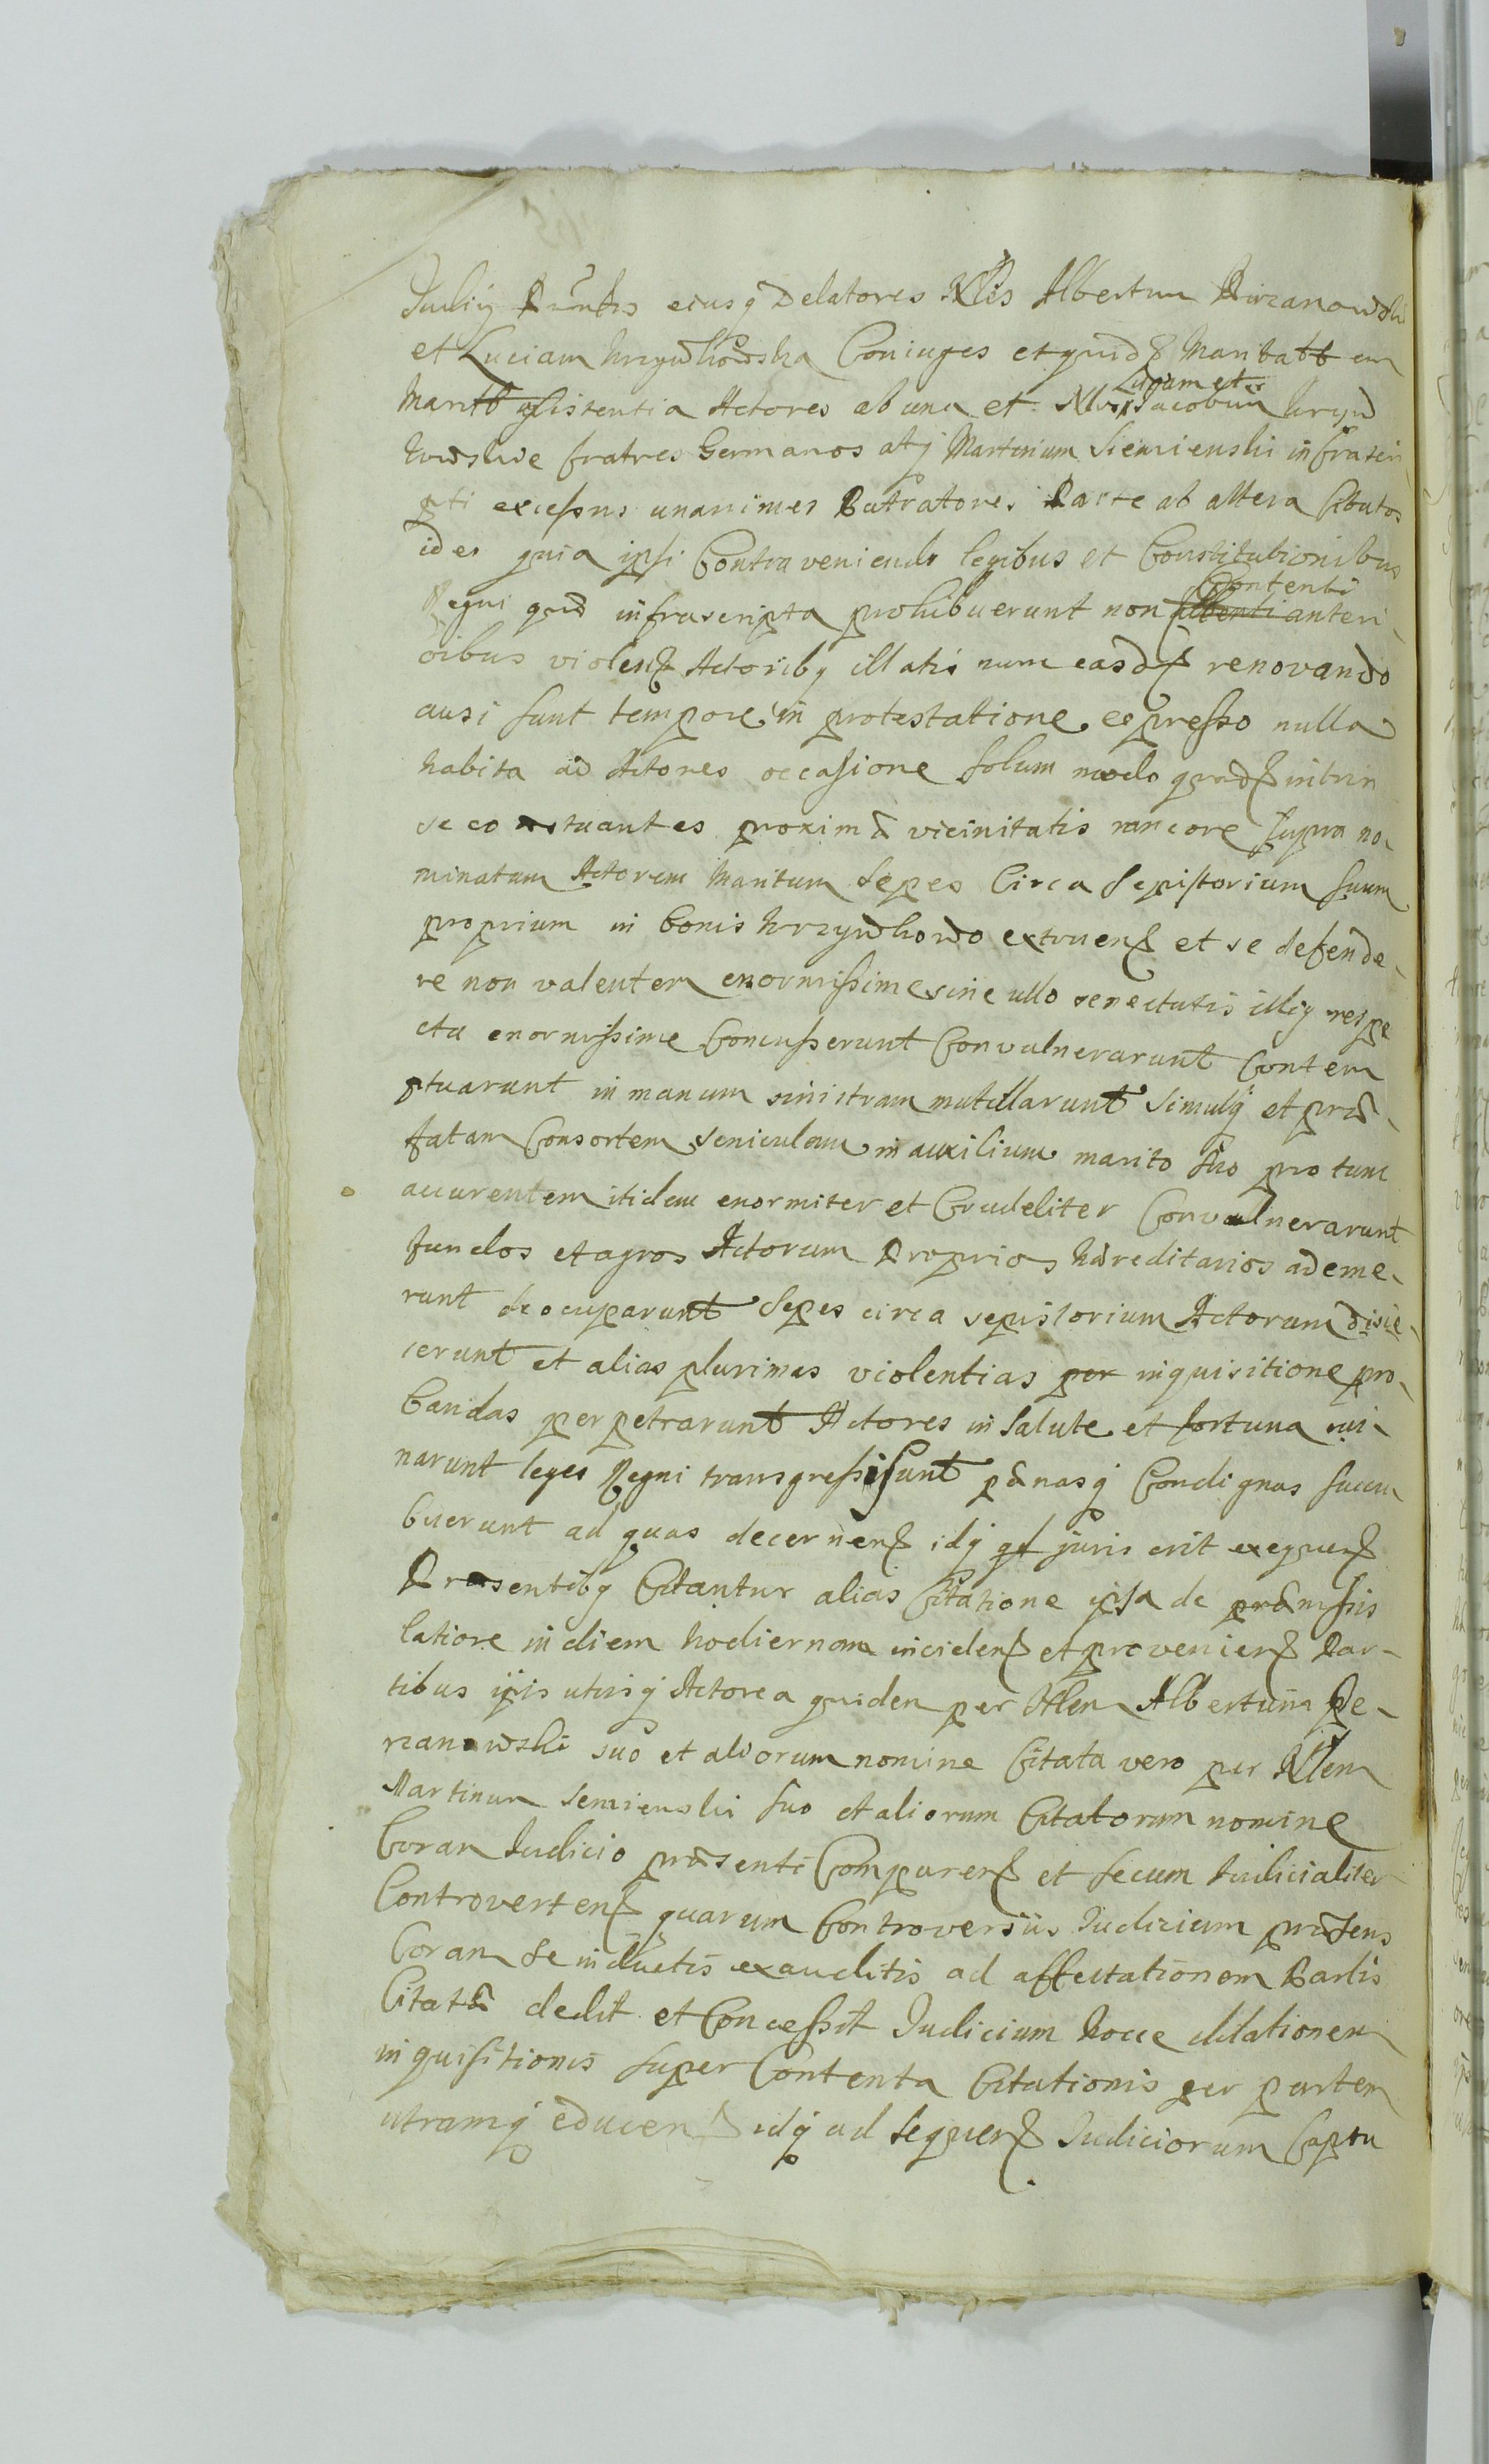 Judicij eiusq Delatores Nles Albertum Pierzanowski
et Luciam Krzywkowska Coniuges et quidẽ Maritatt em
Maritt assistentia Actores ab una et Nlos Lucam et Jacobum Krzyw
kowskie fratres Germanos atq Martinum Siemienski infrascri
pti excessus unanimes Patratores Parte ab altera Citatos
ideo quia ipsi Contraveniendo legibus et Constitutionibus
Regni quæ infrascripta prohibuerunt non Contenti anteri
oribus violens Actoribq illatis nunc easdem renovando
ausi sunt tempore in protestatione expresso nulla
habita ad Actores occasione solum modo quodam intrin
seco æstuantes proximæ vicinitatis rancore supra no
minatum Actorem Maritum sepes Circa Sepistorium suum
proprium in bonis Krzywkowo extruen et se defende
re non valentem enormissime sine ullo senectutis illiq respe
ctu enormissime Concusserunt Convulnerarunt Contem
ptuarunt in manum sinistram mutillarunt simulq et præ
fatam Consortem seniculam in auxilium marito suo pro tunc
accurentem itidem enormiter et Crudeliter Convulnerarunt
fundos et agros Actorum Proprios hæreditarios ademe
runt deocuparunt Sepes circa sepistorium Actorum disie
cerunt et alias plurimas violentias per inquisitione pro
bandas perpetrarunt Actores in salute et fortuna rui
narunt leges Regni transgressi sunt pænasq Condignas succu
buerunt ad quas decernen idq qd juris erit exequen
Præsentibq Citantur alias Citatione ipsa de præmissis
latiore in diem hodiernam inciden et provenien Par
tibus ipis utrisq Actorea quidem per Nlem Albertum Pe
rzanowski suo et aliorum nomine Citata vero per Nlem
Martinum Semienski suo et aliorum Citatorum nomine
Coram Judicio præsenti Comparen et secum Judicialiter
Controverten quarum Controversiis Judicium præsens
Coram se inductis exauditis ad affectationem Partis
Citatæ dedit et Concessit Judicium Hocce dilationem
inquisitionis super Contenta Citationis per partem
utramq educen idq ad sequen Judiciorum Captu